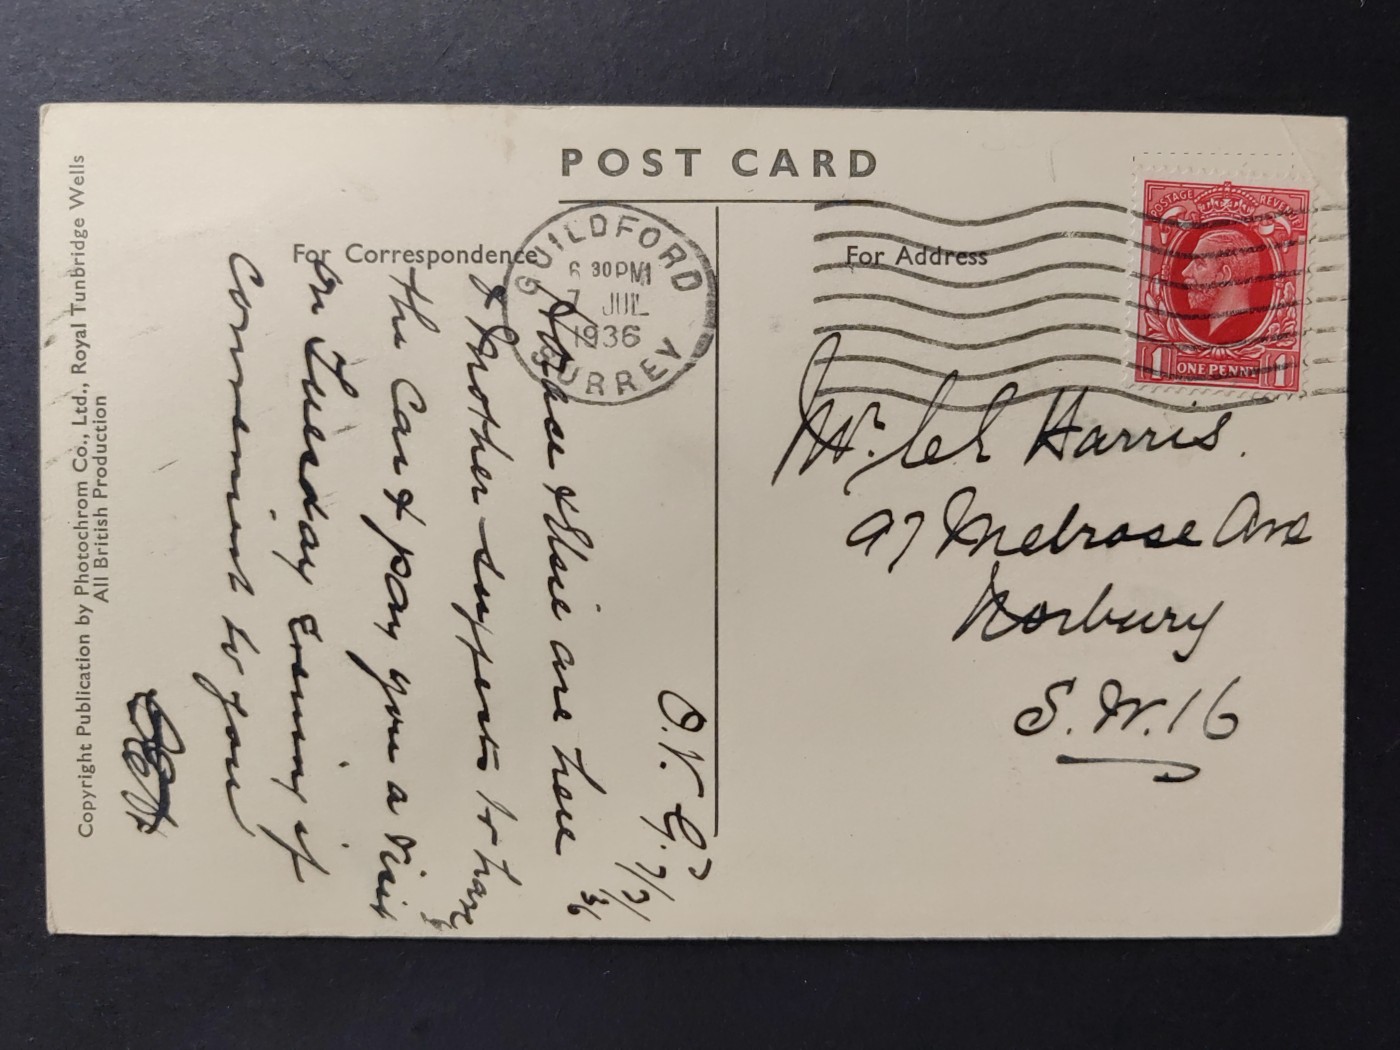 POST CARD
For Correspondence
For Address
GUILDFORD
6 30PM
7 JUL
1936
SURREY
POSTAGE REVENUE
1 ONE PENNY 1
Mr. Harris.
97 Melrose Ave
Norbury
S.W.16
O.V.G.
7/7/36
& Elsie are here
& Mother suggests to have
the Car & pay you a visit
on Tuesday Evening if
Convenient to you
Copyright Publication by Photochrom Co., Ltd., Royal Tunbridge Wells
All British Production